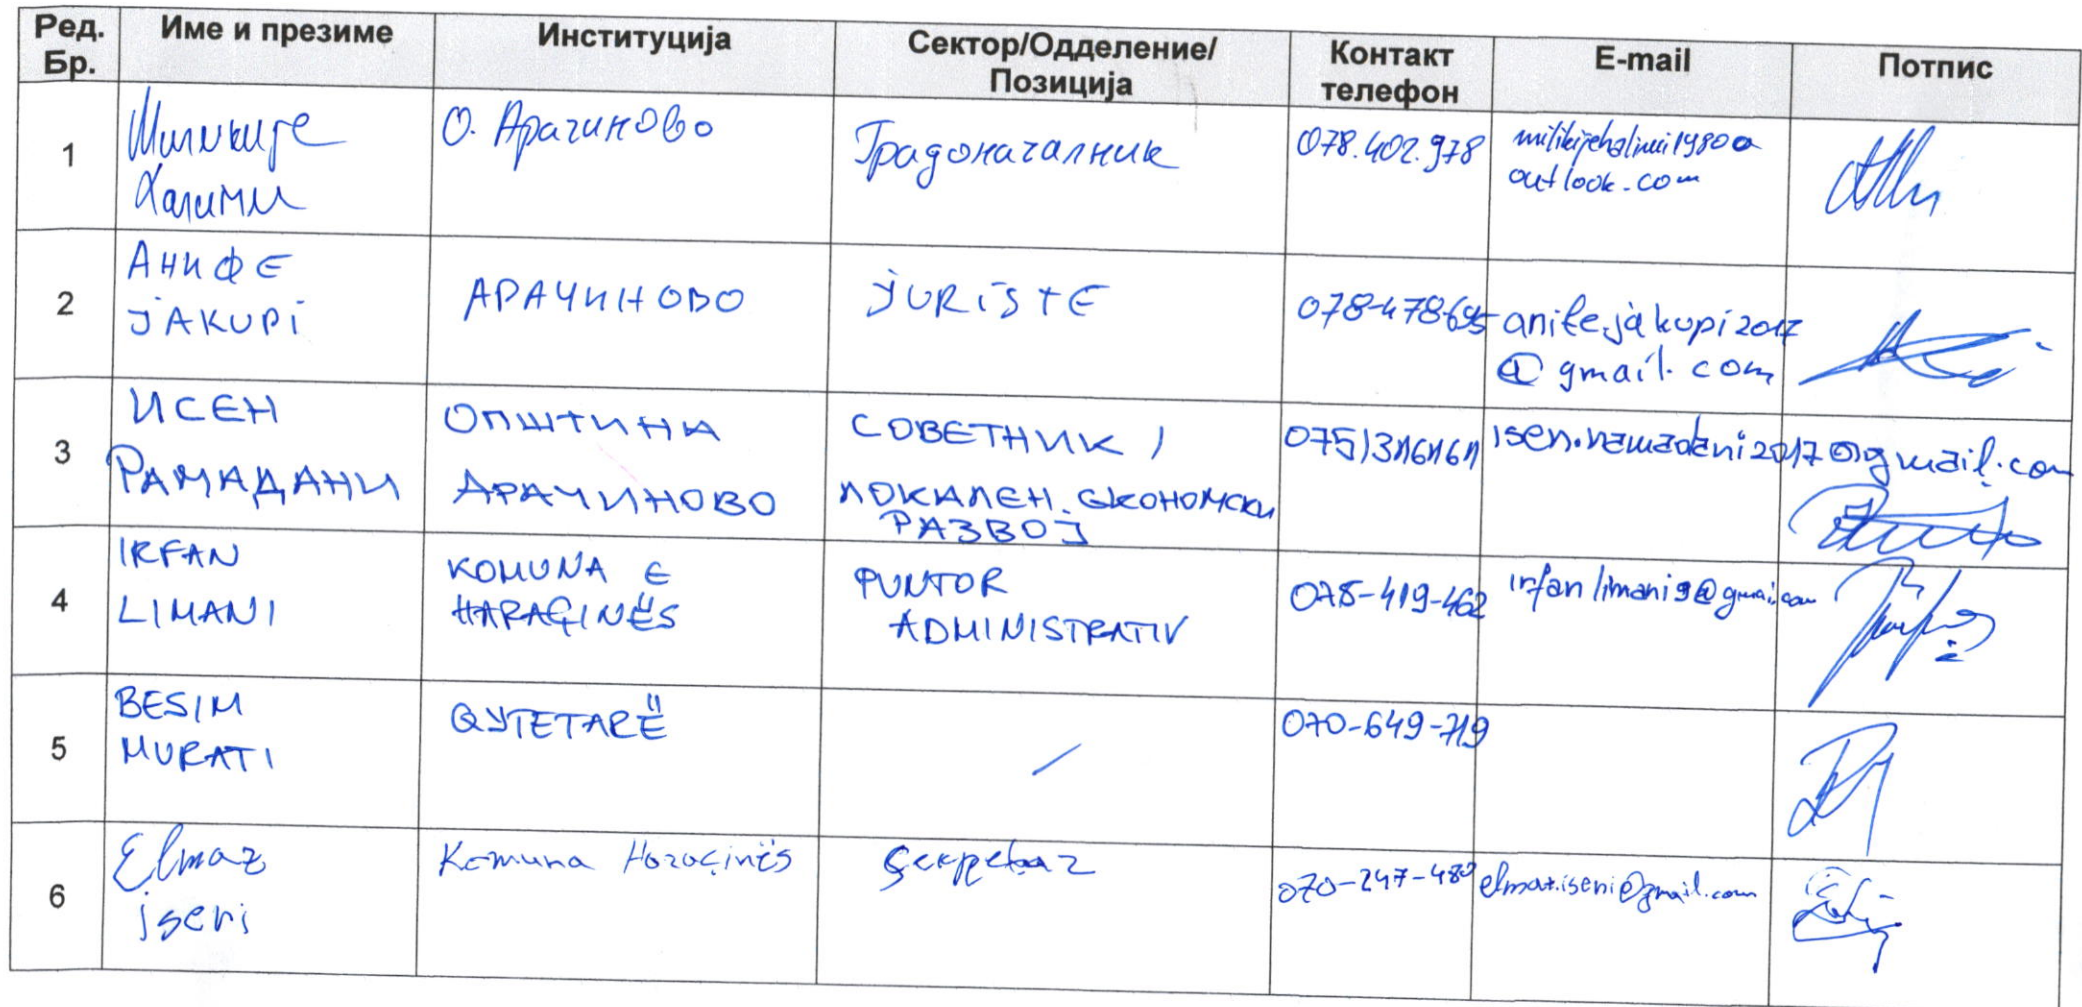 Ред. Бр. Име и презиме Институција Сектор/Одделение/Позиција Контакт телефон E-mail Потпис
1
Миликије
Халими
О. Арачиново
Градоначалник
078.402.978
milikijehalimi1980@
outlook.com
2
АНИФЕ
JAKUPI
АРАЧИНОВО
JURISTE
078-478-695
anife.jakupi2017
@gmail.com
3
ИСЕН
РАМАДАНИ
ОПШТИНА
АРАЧИНОВО
СОВЕТНИК /
ЛОКАЛЕН ЕКОНОМСКИ
РАЗВОЈ
075/3161611
isen.ramadani2017@gmail.com
4
IRFAN
LIMANI
KOMUNA E
HARAÇINËS
PUNTOR
ADMINISTRATIV
078-419-462
irfanlimani9@gmail.com
5
BESIM
MURATI
QYTETARË
/
070-649-719
6
Elmaz
iseni
Komuna Haraçinës
070-247-480
elmaz.iseni@gmail.com